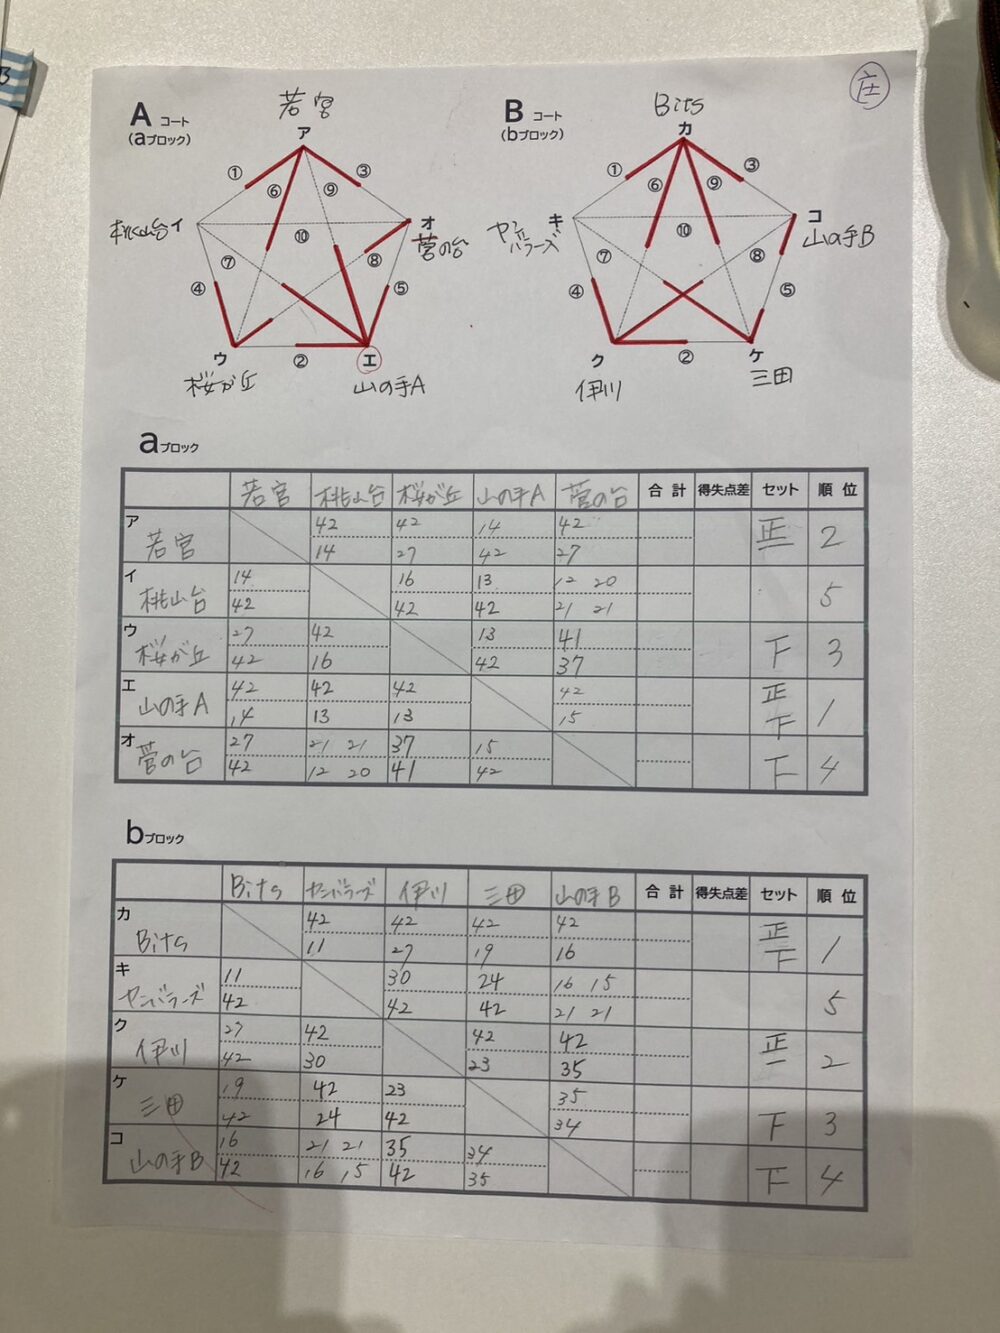 庄
A コート
(aブロック)
若宮
ア
① ③
⑥ ⑨
桃山台 イ
オ
菅の台
⑩
⑦ ⑧
④ ⑤
ウ ② エ
桜が丘 山の手A
B コート
(bブロック)
Bits
カ
① ③
⑥ ⑨
ヤンバラーズ キ
コ
山の手B
⑩
⑦ ⑧
④ ⑤
ク ② ケ
伊川 三田
aブロック
若宮 桃山台 桜が丘 山の手A 菅の台 合計 得失点差 セット 順位
ア 42 42 14 42
若宮 14 27 42 27 正 2
イ 14 16 13 12 20
桃山台 42 42 42 21 21 5
ウ 27 42 13 41
桜が丘 42 16 42 37 下 3
エ 42 42 42 42 正
山の手A 14 13 13 15 下 1
オ 27 21 21 37 15
菅の台 42 12 20 41 42 下 4
bブロック
Bits ヤンバラーズ 伊川 三田 山の手B 合計 得失点差 セット 順位
カ 42 42 42 42 正
Bits 11 27 19 16 下 1
キ 11 30 24 16 15
ヤンバラーズ 42 42 42 21 21 5
ク 27 42 42 42 正
伊川 42 30 23 35 2
ケ 19 42 23 35
三田 42 24 42 34 下 3
コ 16 21 21 35 34
山の手B 42 16 15 42 35 下 4